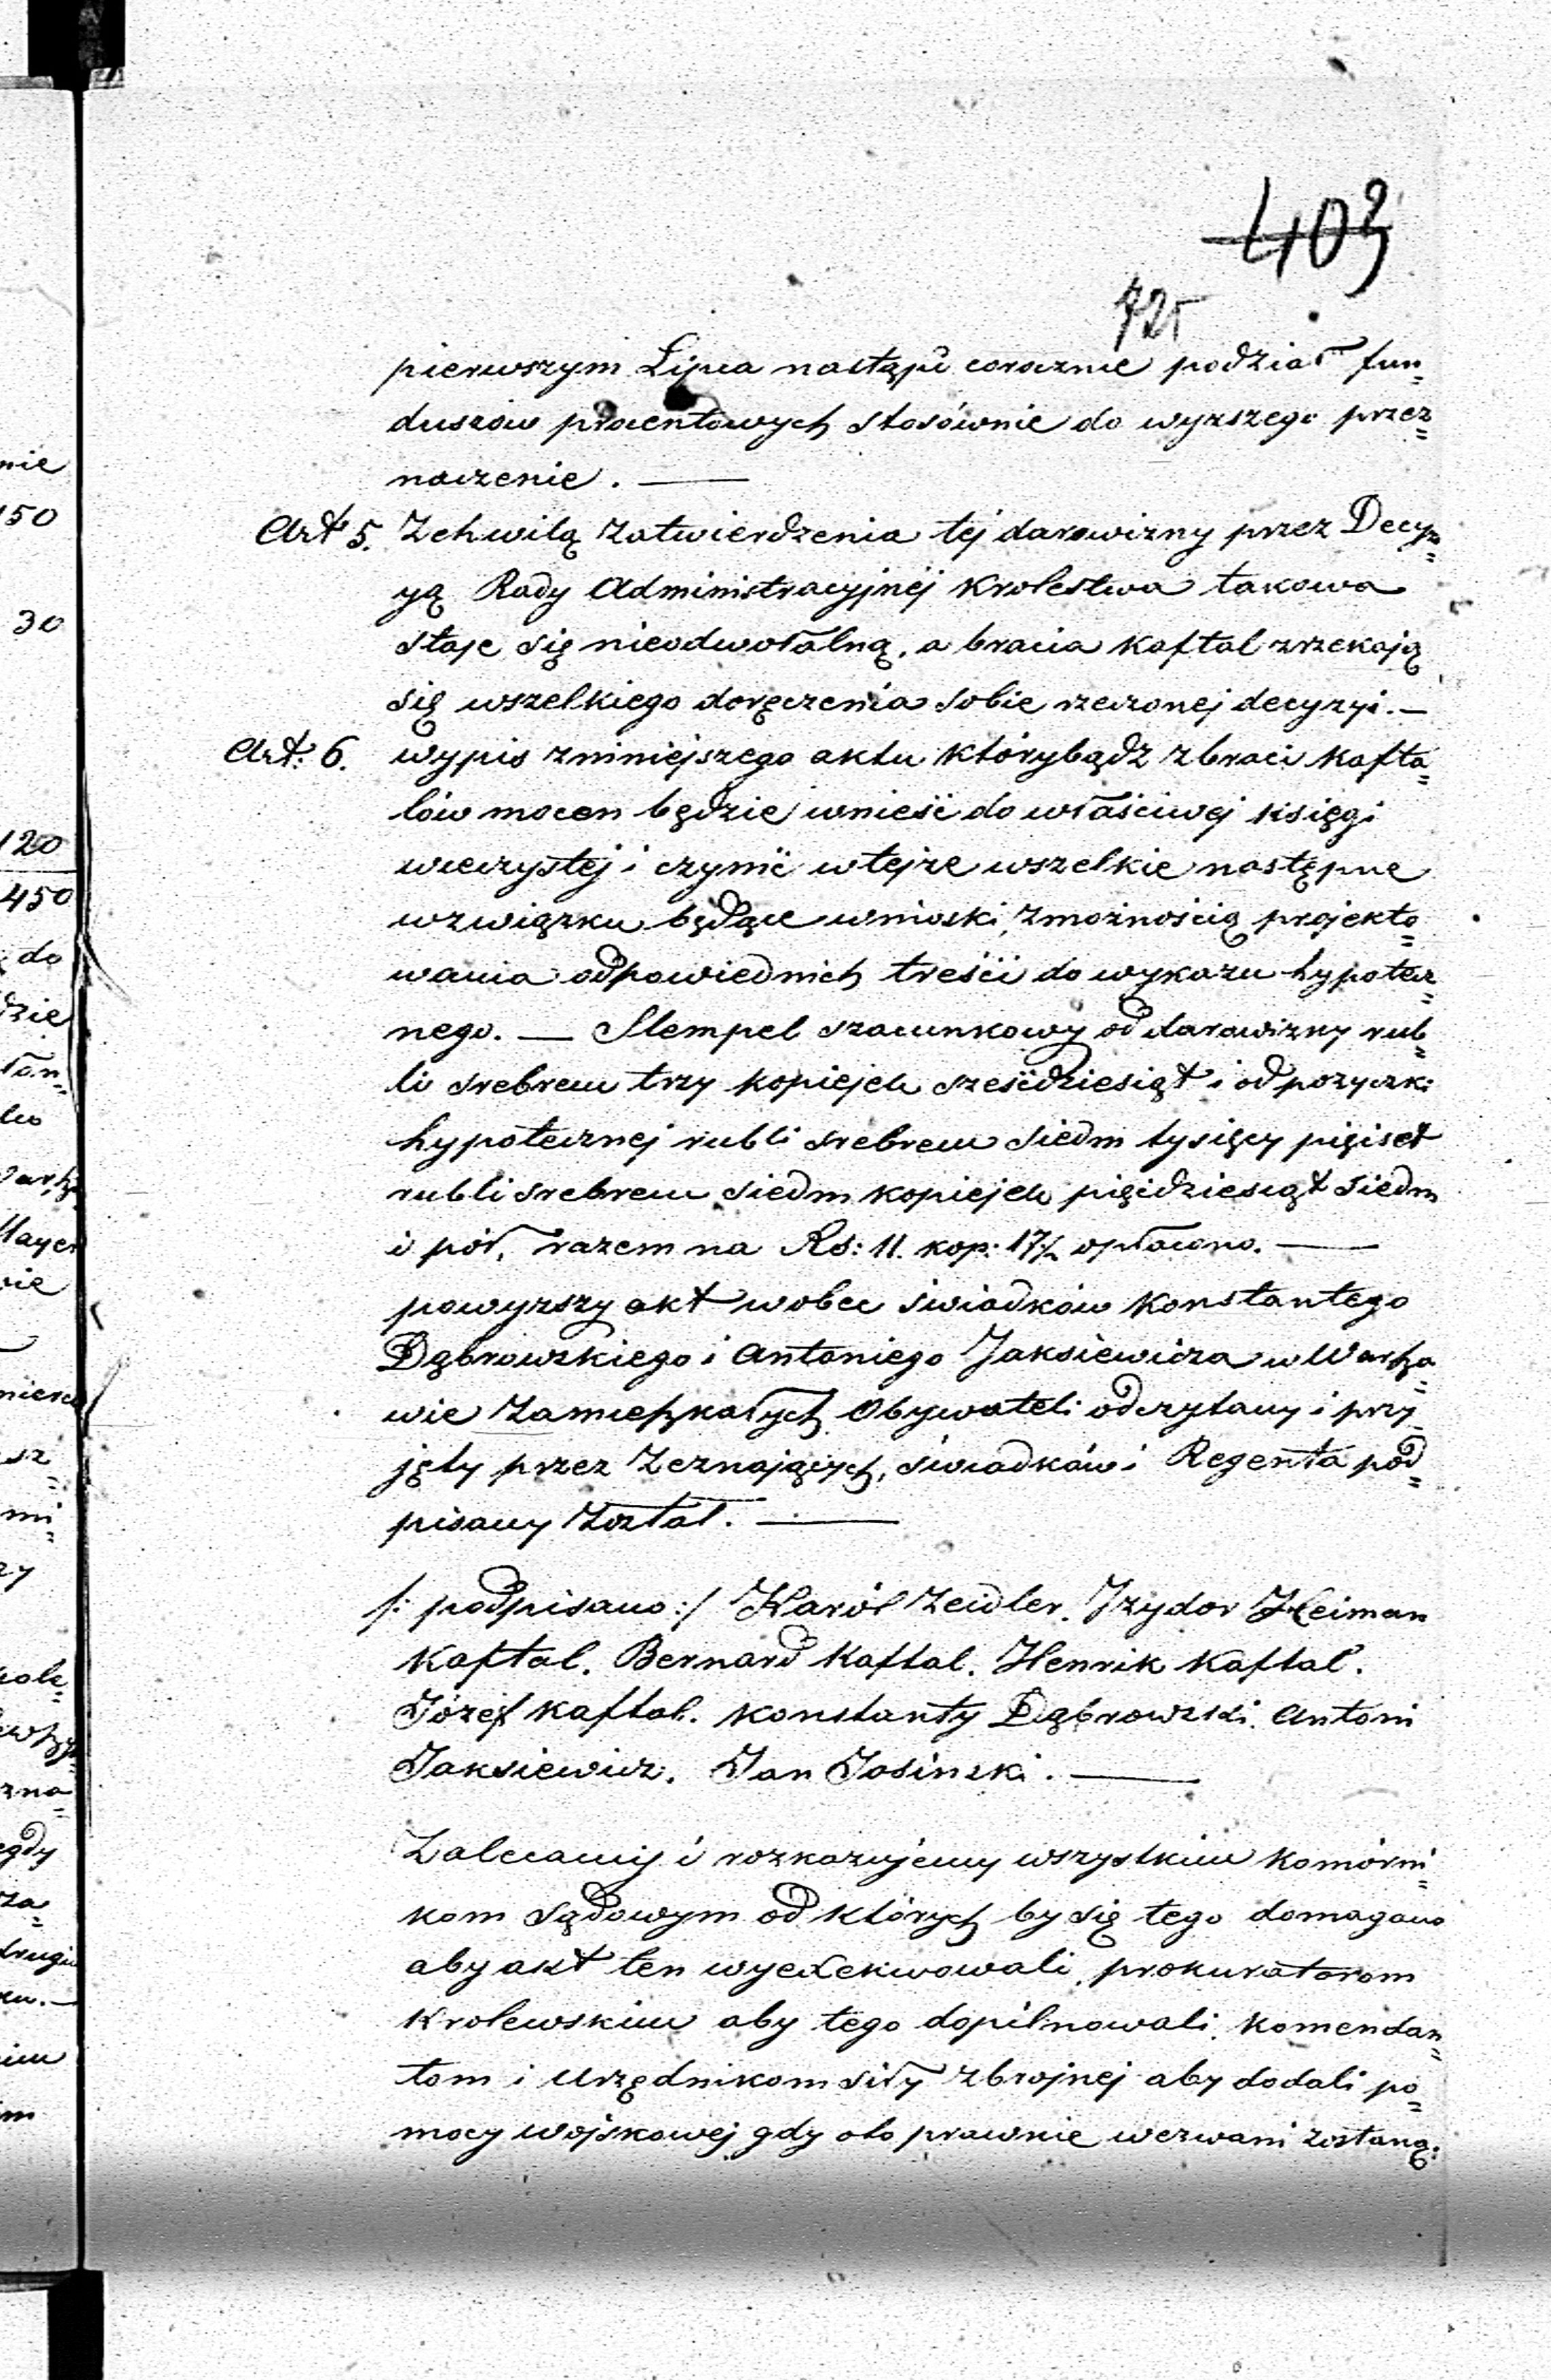 403
725
pierwszym Lipca nastąpi corocznie podział fun=
duszów procentowych stosównie do wyższego przez=
naczenie. —
Art 5. Zchwilą zatwierdzenia tej darowizny przez Decyz=
yą Rady Administracyjnéj Krolestwa takowa
staje się nieodwołalną, a bracia Kaftal zrzekają
się wszelkiego doręczenia sobie rzeczonej decyzyi. —
Art: 6. wypis zniniejszego aktu którybądz zbraci Kafta=
lów mocen będzie wnieść do właściwej księgi
wieczystej i czynić wtejże wszelkie następne
wzwiązku będące wnioski, zmożnością projekto=
wania odpowiednich treści do wykazu hypotecz=
nego. — Stempel szacunkowy od darowizny rub=
li srebrem trzy kopiejek sześćdziesiąt i od pożyczki
hypotecznej rubli srebrem siedm tysięcy pięćset
rubli srebrem siedm kopiejek pięćdziesiąt siedm
i pół, razem na Rs: 11. kop: 17½ opłacono. —
powyższy akt wobec świadków Konstantego
Dąbrowskiego i Antoniego Jaksiewicza w Warsza=
wie zamieszkałych Obywateli odczytany i przy=
jęty przez Zeznających, świadków i Regenta pod=
pisany został. —
/: podpisano :/ Karól Zeidler. Izydor Heiman
Kaftal. Bernard Kaftal. Henrik Kaftal.
Józef Kaftal. Konstanty Dąbrowski. Antoni
Jaksiewicz. Jan Jasinski. —
Zalecamy i rozkazujemy wszystkim Komórni=
kom Sądowym od których by się tego domagano
aby akt ten wyexekwowali, prokuratorom
Krolewskim aby tego dopilnowali, Komendan=
tom i Urzędnikom siły zbrojnej aby dodali po=
mocy wojskowej gdy oto prawnie wezwani zostaną.
nie
150
30
120
450
do
dzie